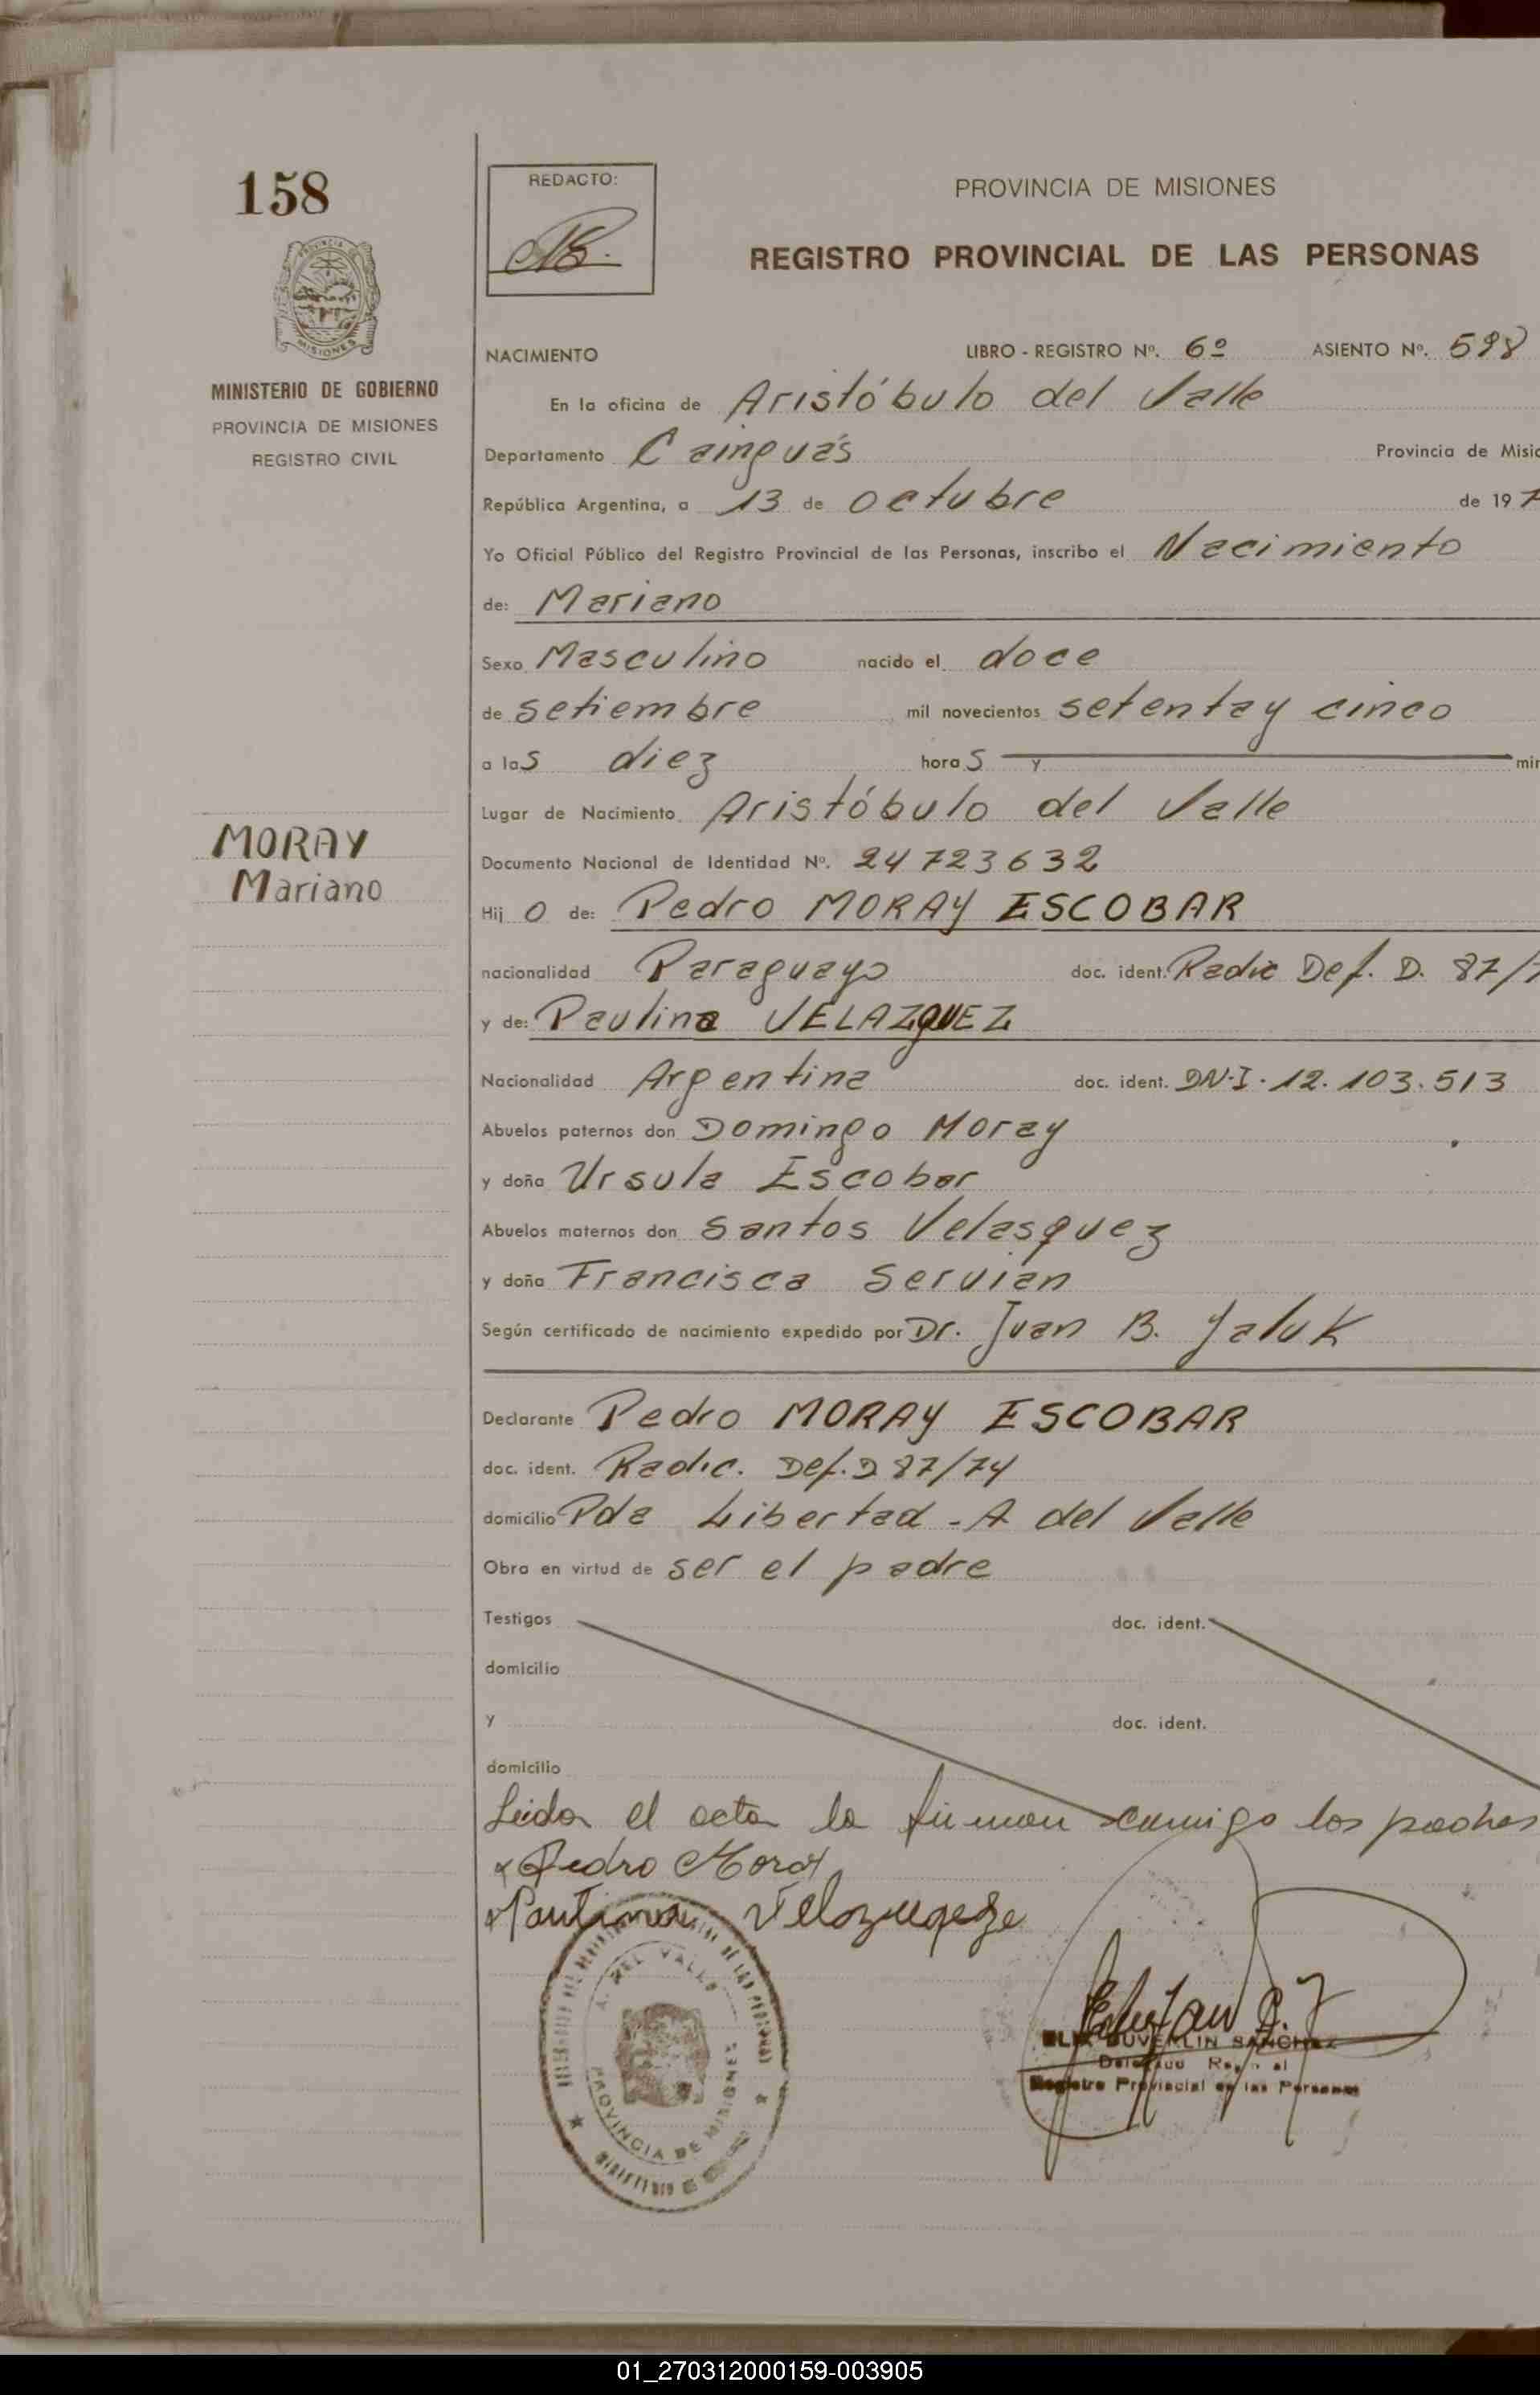 158
REDACTO:
PROVINCIA DE MISIONES
REGISTRO PROVINCIAL DE LAS PERSONAS
MISIONES
MINISTERIO DE GOBIERNO
PROVINCIA DE MISIONES
REGISTRO CIVIL
NACIMIENTO LIBRO - REGISTRO Nº. 6º ASIENTO Nº. 598
En la oficina de Aristóbulo del Valle
Departamento Cainguás Provincia de Misio
República Argentina, a 13 de octubre de 197
Yo Oficial Público del Registro Provincial de las Personas, inscribo el Nacimiento
de: Mariano
Sexo Masculino nacido el doce
de setiembre mil novecientos setenta y cinco
a las diez horas y min
Lugar de Nacimiento Aristóbulo del Valle
MORAY
Mariano
Documento Nacional de Identidad Nº. 24723632
Hijo de: Pedro MORAY ESCOBAR
nacionalidad Paraguayo doc. ident. Radic Def. D. 87/7
y de: Paulina VELAZQUEZ
Nacionalidad Argentina doc. ident. DN.I. 12.103.513
Abuelos paternos don Domingo Moray
y doña Ursula Escobar
Abuelos maternos don Santos Velasquez
y doña Francisca Servian
Según certificado de nacimiento expedido por Dr. Juan B. Yaluk
Declarante Pedro MORAY ESCOBAR
doc. ident. Radic. Def. D 87/74
domicilio Pda Libertad - A del Valle
Obra en virtud de ser el padre
Testigos doc. ident.
domicilio
y doc. ident.
domicilio
Leida el acta la firman conmigo los padres
x Pedro Moray
x Paulina
A. DEL VALLE
PROVINCIA DE MISIONES
SANCHEZ
Delegado Regional
Registro Provincial de las Personas
01_270312000159-003905